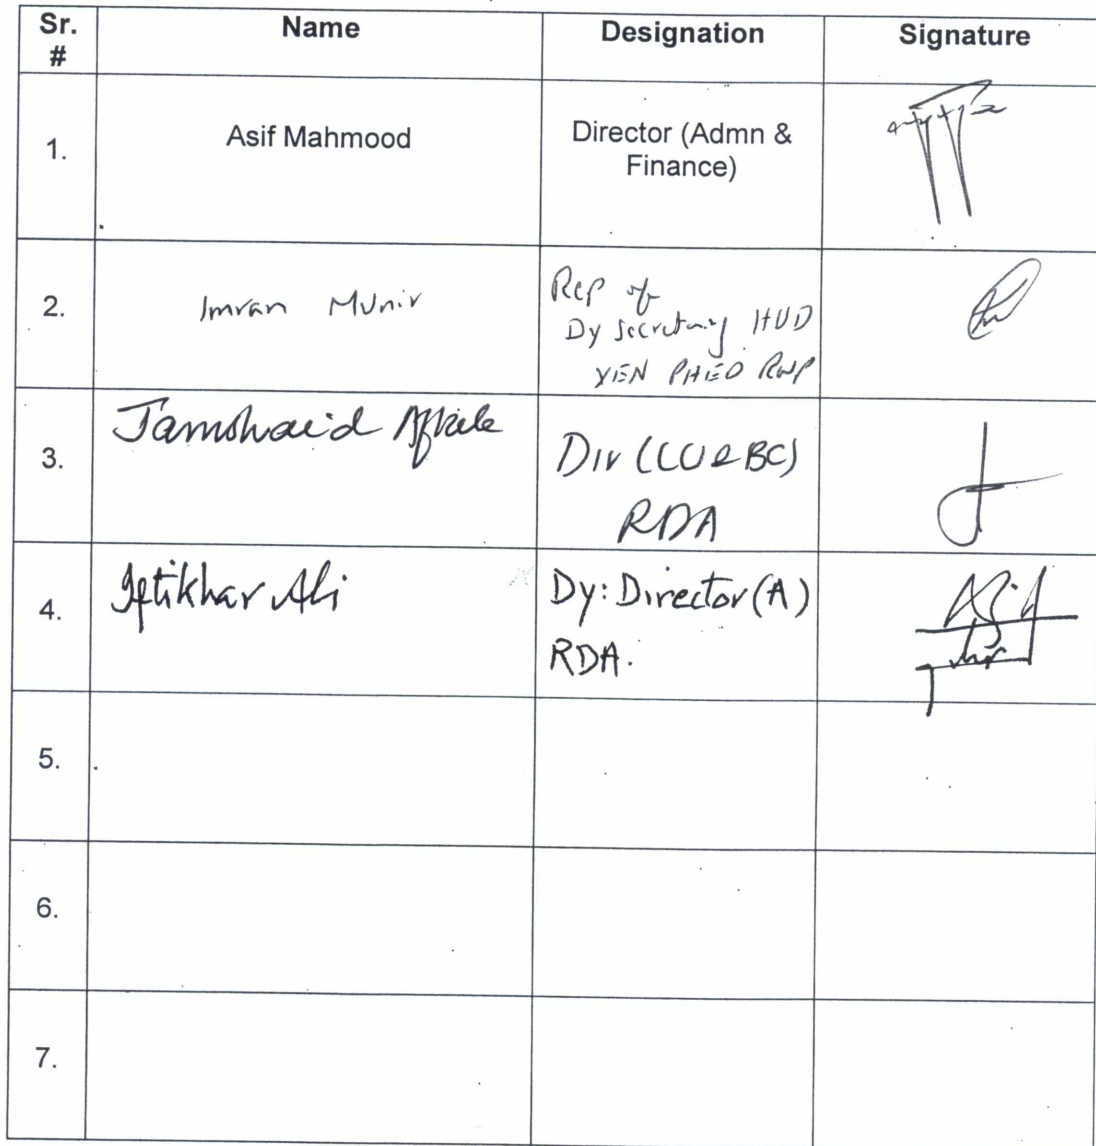 Sr. # Name Designation Signature
1. Asif Mahmood Director (Admn &
Finance)
2. Imran Munir Rep of
Dy Secretary HUD
XEN PHED RWP
3. Jamshaid Div (LU&BC)
RDA
4. Iftikhar Ali Dy: Director (A)
RDA.
5.
6.
7.